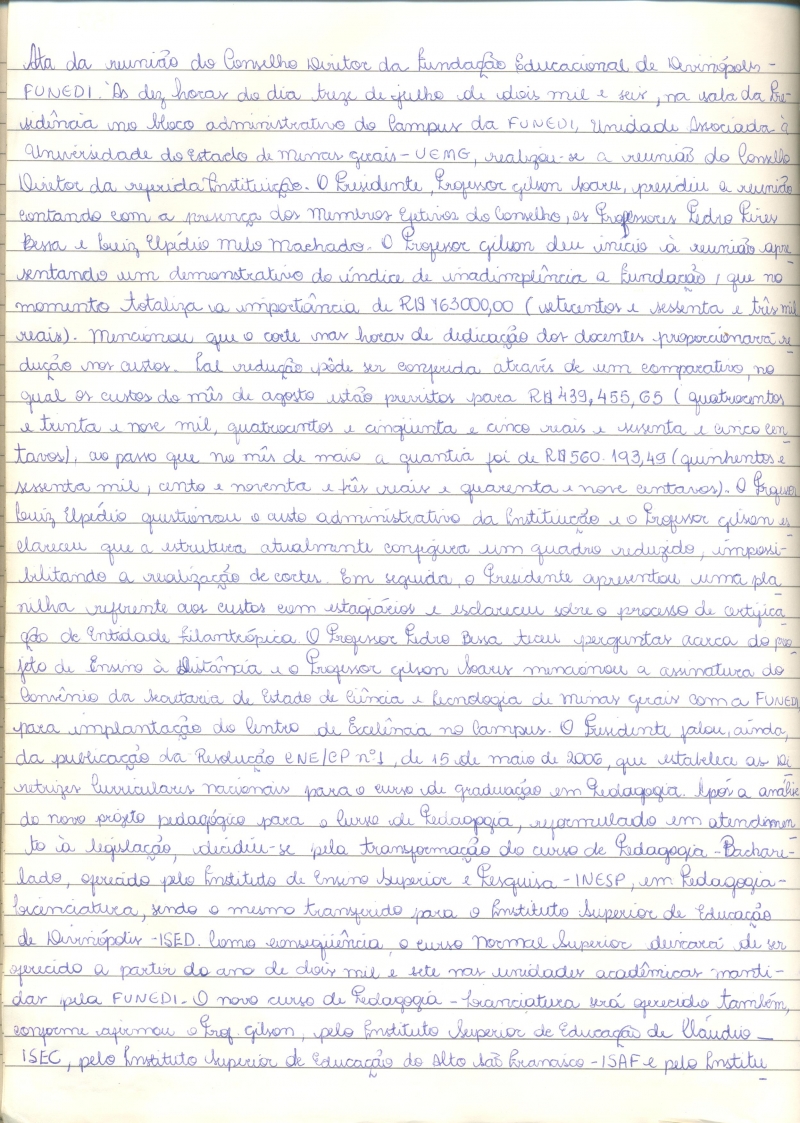 Ata da reunião do Conselho Diretor da Fundação Educacional de Divinópolis -
FUNEDI. Às dez horas do dia treze de julho de dois mil e seis, na sala da Pre-
sidência no bloco administrativo do Campus da FUNEDI, Unidade Associada à
Universidade do Estado de Minas Gerais - UEMG, realizou-se a reunião do Conselho
Diretor da referida Instituição. O Presidente, Professor Gilson Soares, presidiu a reunião
contando com a presença dos Membros Efetivos do Conselho, os Professores Pedro Pires
Bessa e Luiz Elpídio Melo Machado. O Professor Gilson deu início à reunião apre-
sentando um demonstrativo do índice de inadimplência a Fundação, que no
momento totaliza a importância de R$ 763000,00 (setecentos e sessenta e três mil
reais). Mencionou que o corte nas horas de dedicação dos docentes proporcionará re
dução nos custos. Tal redução pôde ser conferida através de um comparativo, no
qual os custos do mês de agosto estão previstos para R$ 439,455,65 (quatrocentos
e trinta e nove mil, quatrocentos e cinqüenta e cinco reais e sessenta e cinco cen
tavos), ao passo que no mês de maio a quantia foi de R$ 560.193,49 (quinhentos e
sessenta mil, cento e noventa e três reais e quarenta e nove centavos). O Professor
Luiz Elpídio questionou o custo administrativo da Instituição e o Professor Gilson es
clareceu que a estrutura atualmente configura um quadro reduzido, impossi-
bilitando a realização de cortes. Em seguida, o Presidente apresentou uma pla
nilha referente aos custos com estagiários e esclareceu sobre o processo de certifica
ção de Entidade Filantrópica. O Professor Pedro Bessa teceu perguntas acerca do pro
jeto de Ensino à Distância e o Professor Gilson Soares mencionou a assinatura do
Convênio da Secretaria de Estado de Ciência e Tecnologia de Minas Gerais com a FUNEDI
para implantação do Centro de Excelência no Campus. O Presidente falou, ainda,
da publicação da Resolução CNE/CP nº1, de 15 de maio de 2006, que estabelece as Di
retrizes Curriculares nacionais para o curso de graduação em Pedagogia. Após a análise
do novo projeto pedagógico para o Curso de Pedagogia, reformulado em atendimen
to à legislação, decidiu-se pela transformação do curso de Pedagogia - Bacharе-
lado, oferecido pelo Instituto de Ensino Superior e Pesquisa - INESP, em Pedagogia -
Licenciatura, sendo o mesmo transferido para o Instituto Superior de Educação
de Divinópolis - ISED. Como conseqüência, o curso Normal Superior deixará de ser
oferecido a partir do ano de dois mil e sete nas unidades acadêmicas manti-
das pela FUNEDI. O novo curso de Pedagogia - Licenciatura será oferecido também,
conforme afirmou o Prof. Gilson, pelo Instituto Superior de Educação de Cláudio -
ISEC, pelo Instituto Superior de Educação do Alto São Francisco - ISAF e pelo Institu